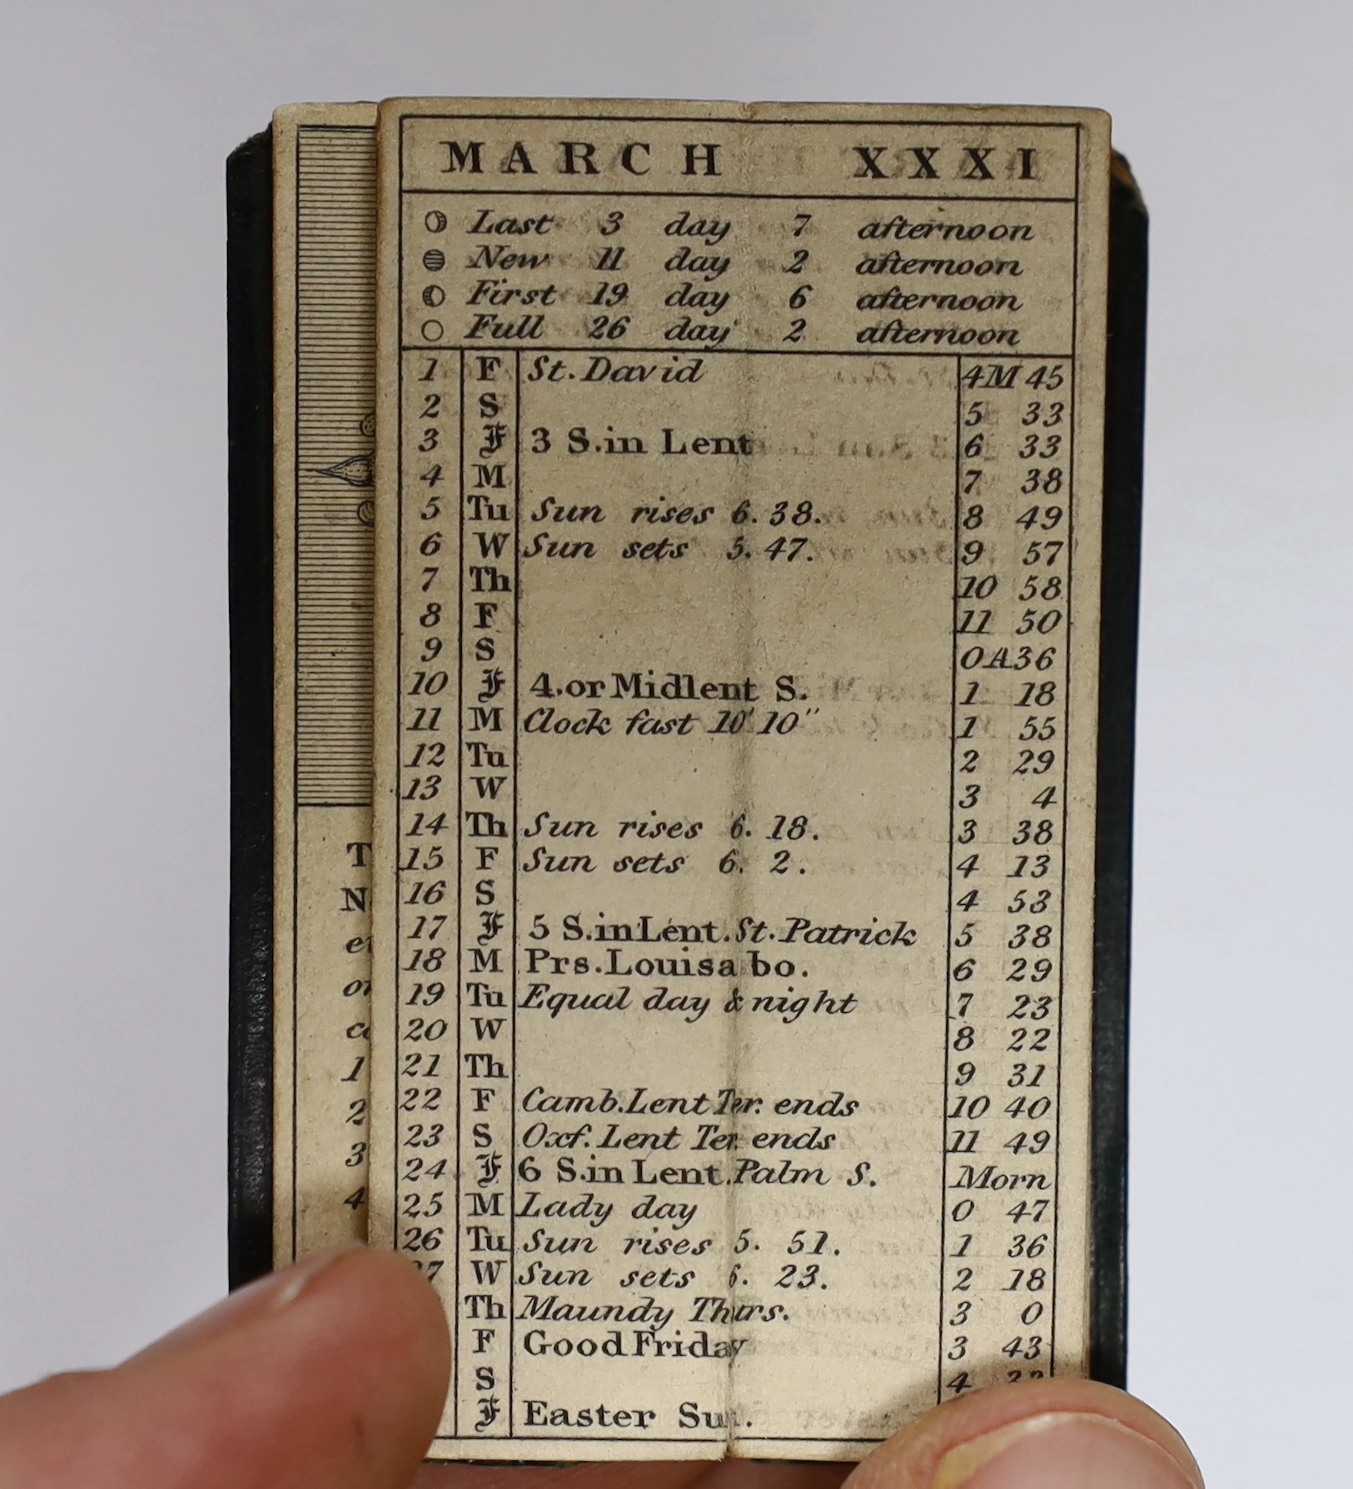 MARCH XXXI
Last 3 day 7 afternoon
New 11 day 2 afternoon
First 19 day 6 afternoon
Full 26 day 2 afternoon
1 F St. David 4M 45
2 S 5 33
3 F 3 S. in Lent 6 33
4 M 7 38
5 Tu Sun rises 6. 38. 8 49
6 W Sun sets 5. 47. 9 57
7 Th 10 58
8 F 11 50
9 S 0A36
10 F 4. or Midlent S. 1 18
11 M Clock fast 10' 10" 1 55
12 Tu 2 29
13 W 3 4
14 Th Sun rises 6. 18. 3 38
15 F Sun sets 6. 2. 4 13
16 S 4 53
17 F 5 S. in Lent. St. Patrick 5 38
18 M Prs. Louisa bo. 6 29
19 Tu Equal day & night 7 23
20 W 8 22
21 Th 9 31
22 F Camb. Lent Ter. ends 10 40
23 S Oxf. Lent Ter. ends 11 49
24 F 6 S. in Lent. Palm S. Morn
25 M Lady day 0 47
26 Tu Sun rises 5. 51. 1 36
W Sun sets 6. 23. 2 18
Th Maundy Thurs. 3 0
F Good Friday 3 43
S 4
F Easter Sun.
T
N
1
2
3
4